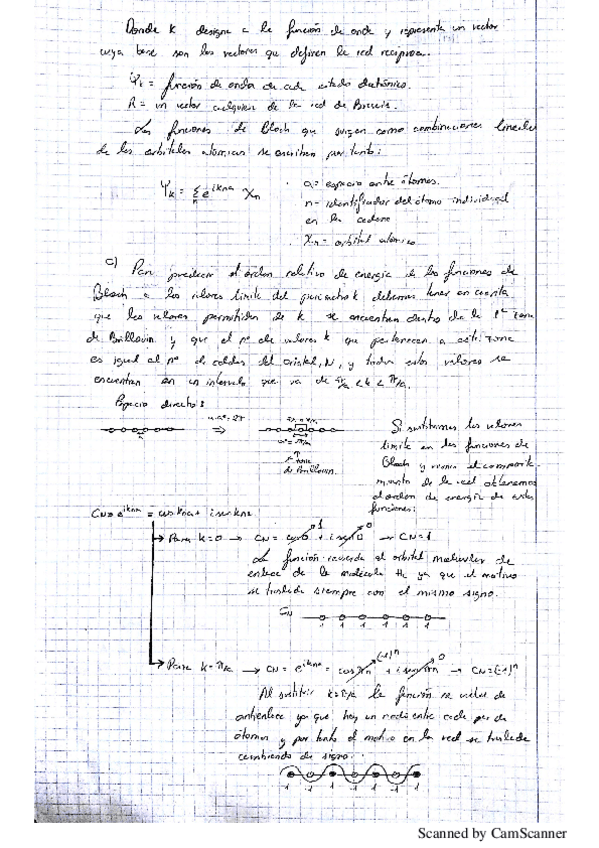 Donde k designa a la función de onda y representa un vector
cuya base son los vectores que definen la red recíproca.
Ψi = función de onda de cada estado electrónico.
R = un vector cualquiera de la red de Bravais.
Las funciones de Bloch que surgen como combinaciones lineales
de los orbitales atómicos se escriben por tanto:
Ψk = Σn e^ikna Xn
a = espacio entre átomos.
n = identificador del átomo individual
en la cadena
Xn = orbital atómico
c) Para predecir el orden relativo de energía de las funciones de
Bloch a los valores límite del parámetro k debemos tener en cuenta
que los valores permitidos de k se encuentran dentro de la 1ª zona
de Brillouin y que el nº de valores k que pertenecen a esta zona
es igual al nº de celdas del cristal, N, y todos estos valores se
encuentran en un intervalo que va de π/a < k < π/a.
Espacio directo:
a·a* = 2π
1ª zona
de Brillouin.
Si sustituimos los valores
límite en las funciones de
Bloch y vemos el comporta-
miento de la red obtenemos
el orden de energía de estas
funciones:
CN = e^ikna = cos kna + i sen kna
Para k=0 → CN = cos 0 1 + i sen 0 0 → CN=1
La función recuerda al orbital molecular de
enlace de la molécula H2 ya que el motivo
se traslada siempre con el mismo signo.
CN
1 1 1 1 1 1
Para k=π/a → CN = e^ikna = cos πn (-1)^n + i sen πn 0 → CN=(-1)^n
Al sustituir k=π/a la función se vuelve de
antienlace ya que hay un nodo entre cada par de
átomos y por tanto el motivo en la red se traslada
cambiando de signo.
-1 1 -1 1 -1 1 -1
Scanned by CamScanner